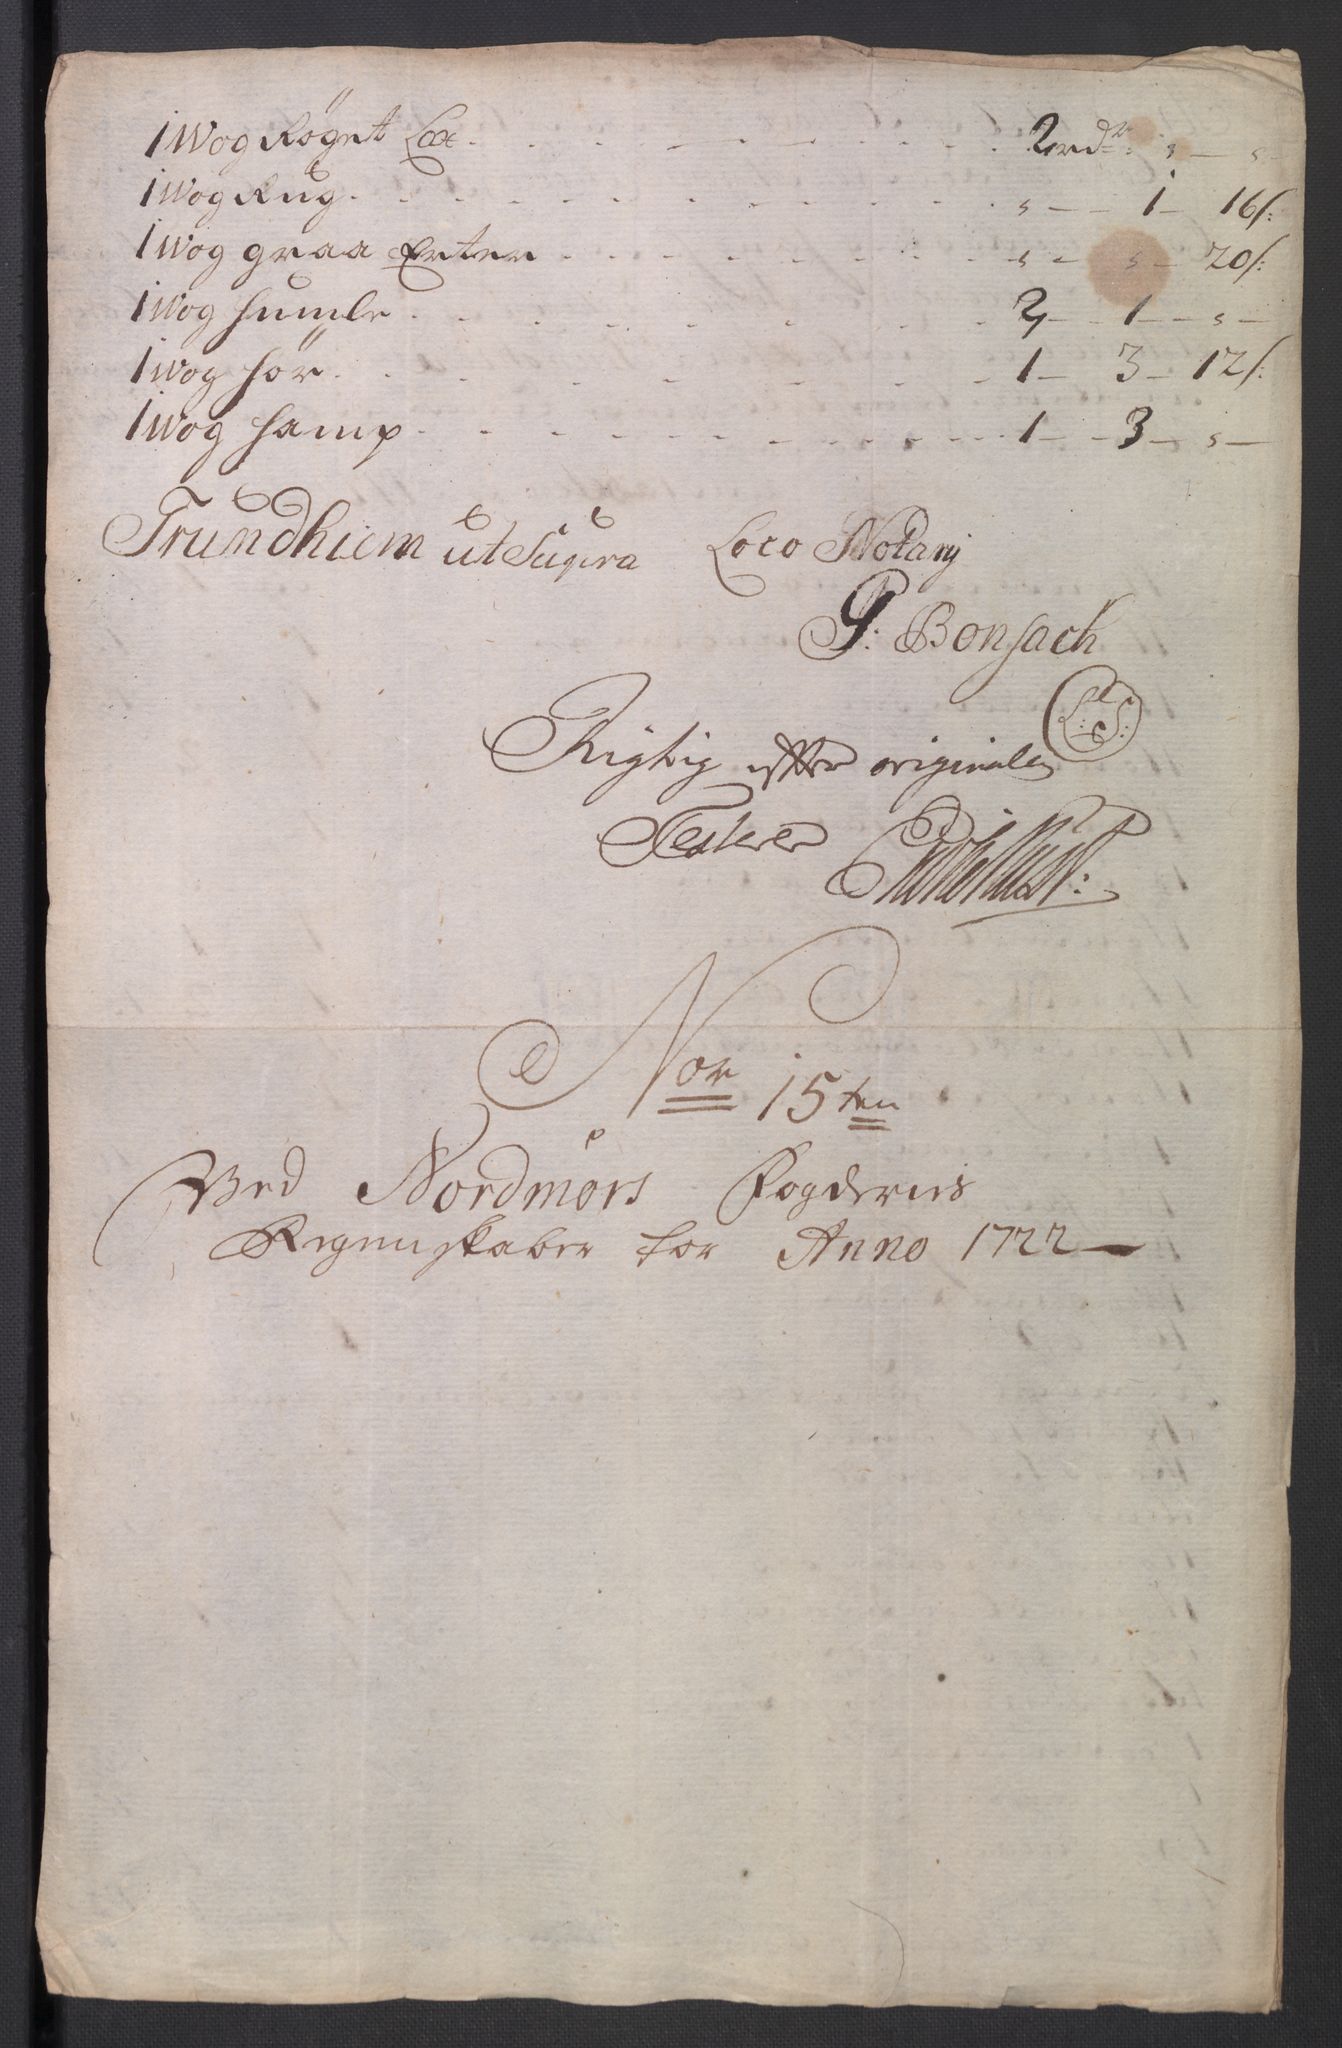 1 Wog Röget Lax - - - - 2 rdr: s — s —
1 Wog Rug - - - - s — 1 — 16/:
1 Wog graa Erter - - - - s — s — 20/:
1 Wog Humle - - - - 2 — 1 — s —
1 Wog Hör - - - - 1 — 3 — 12/:
1 Wog Hamp - - - - 1 — 3 — s —
Trundhiem ut Supra Loco Notarij
P: Bonsach
L: S:
Rigtig efter originalen
Testerer
Nor 15ten
Ved Nordmörs Fogderies
Regenskaber for Anno 1722 —